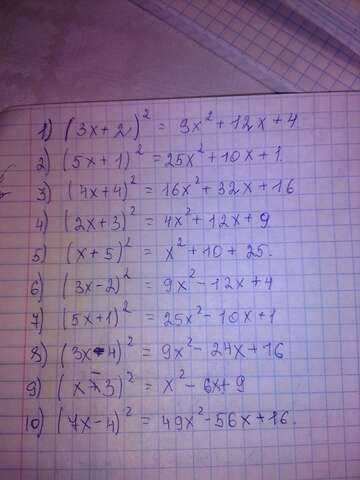 1) (3x+2)² = 9x²+12x+4
2) (5x+1)² = 25x²+10x+1.
3) (4x+4)² = 16x²+32x+16
4) (2x+3)² = 4x²+12x+9
5) (x+5)² = x²+10+25.
6) (3x-2)² = 9x²-12x+4
7) (5x+1)² = 25x²-10x+1
8) (3x-4)² = 9x²-24x+16
9) (x-3)² = x²-6x+9
10) (7x-4)² = 49x²-56x+16.